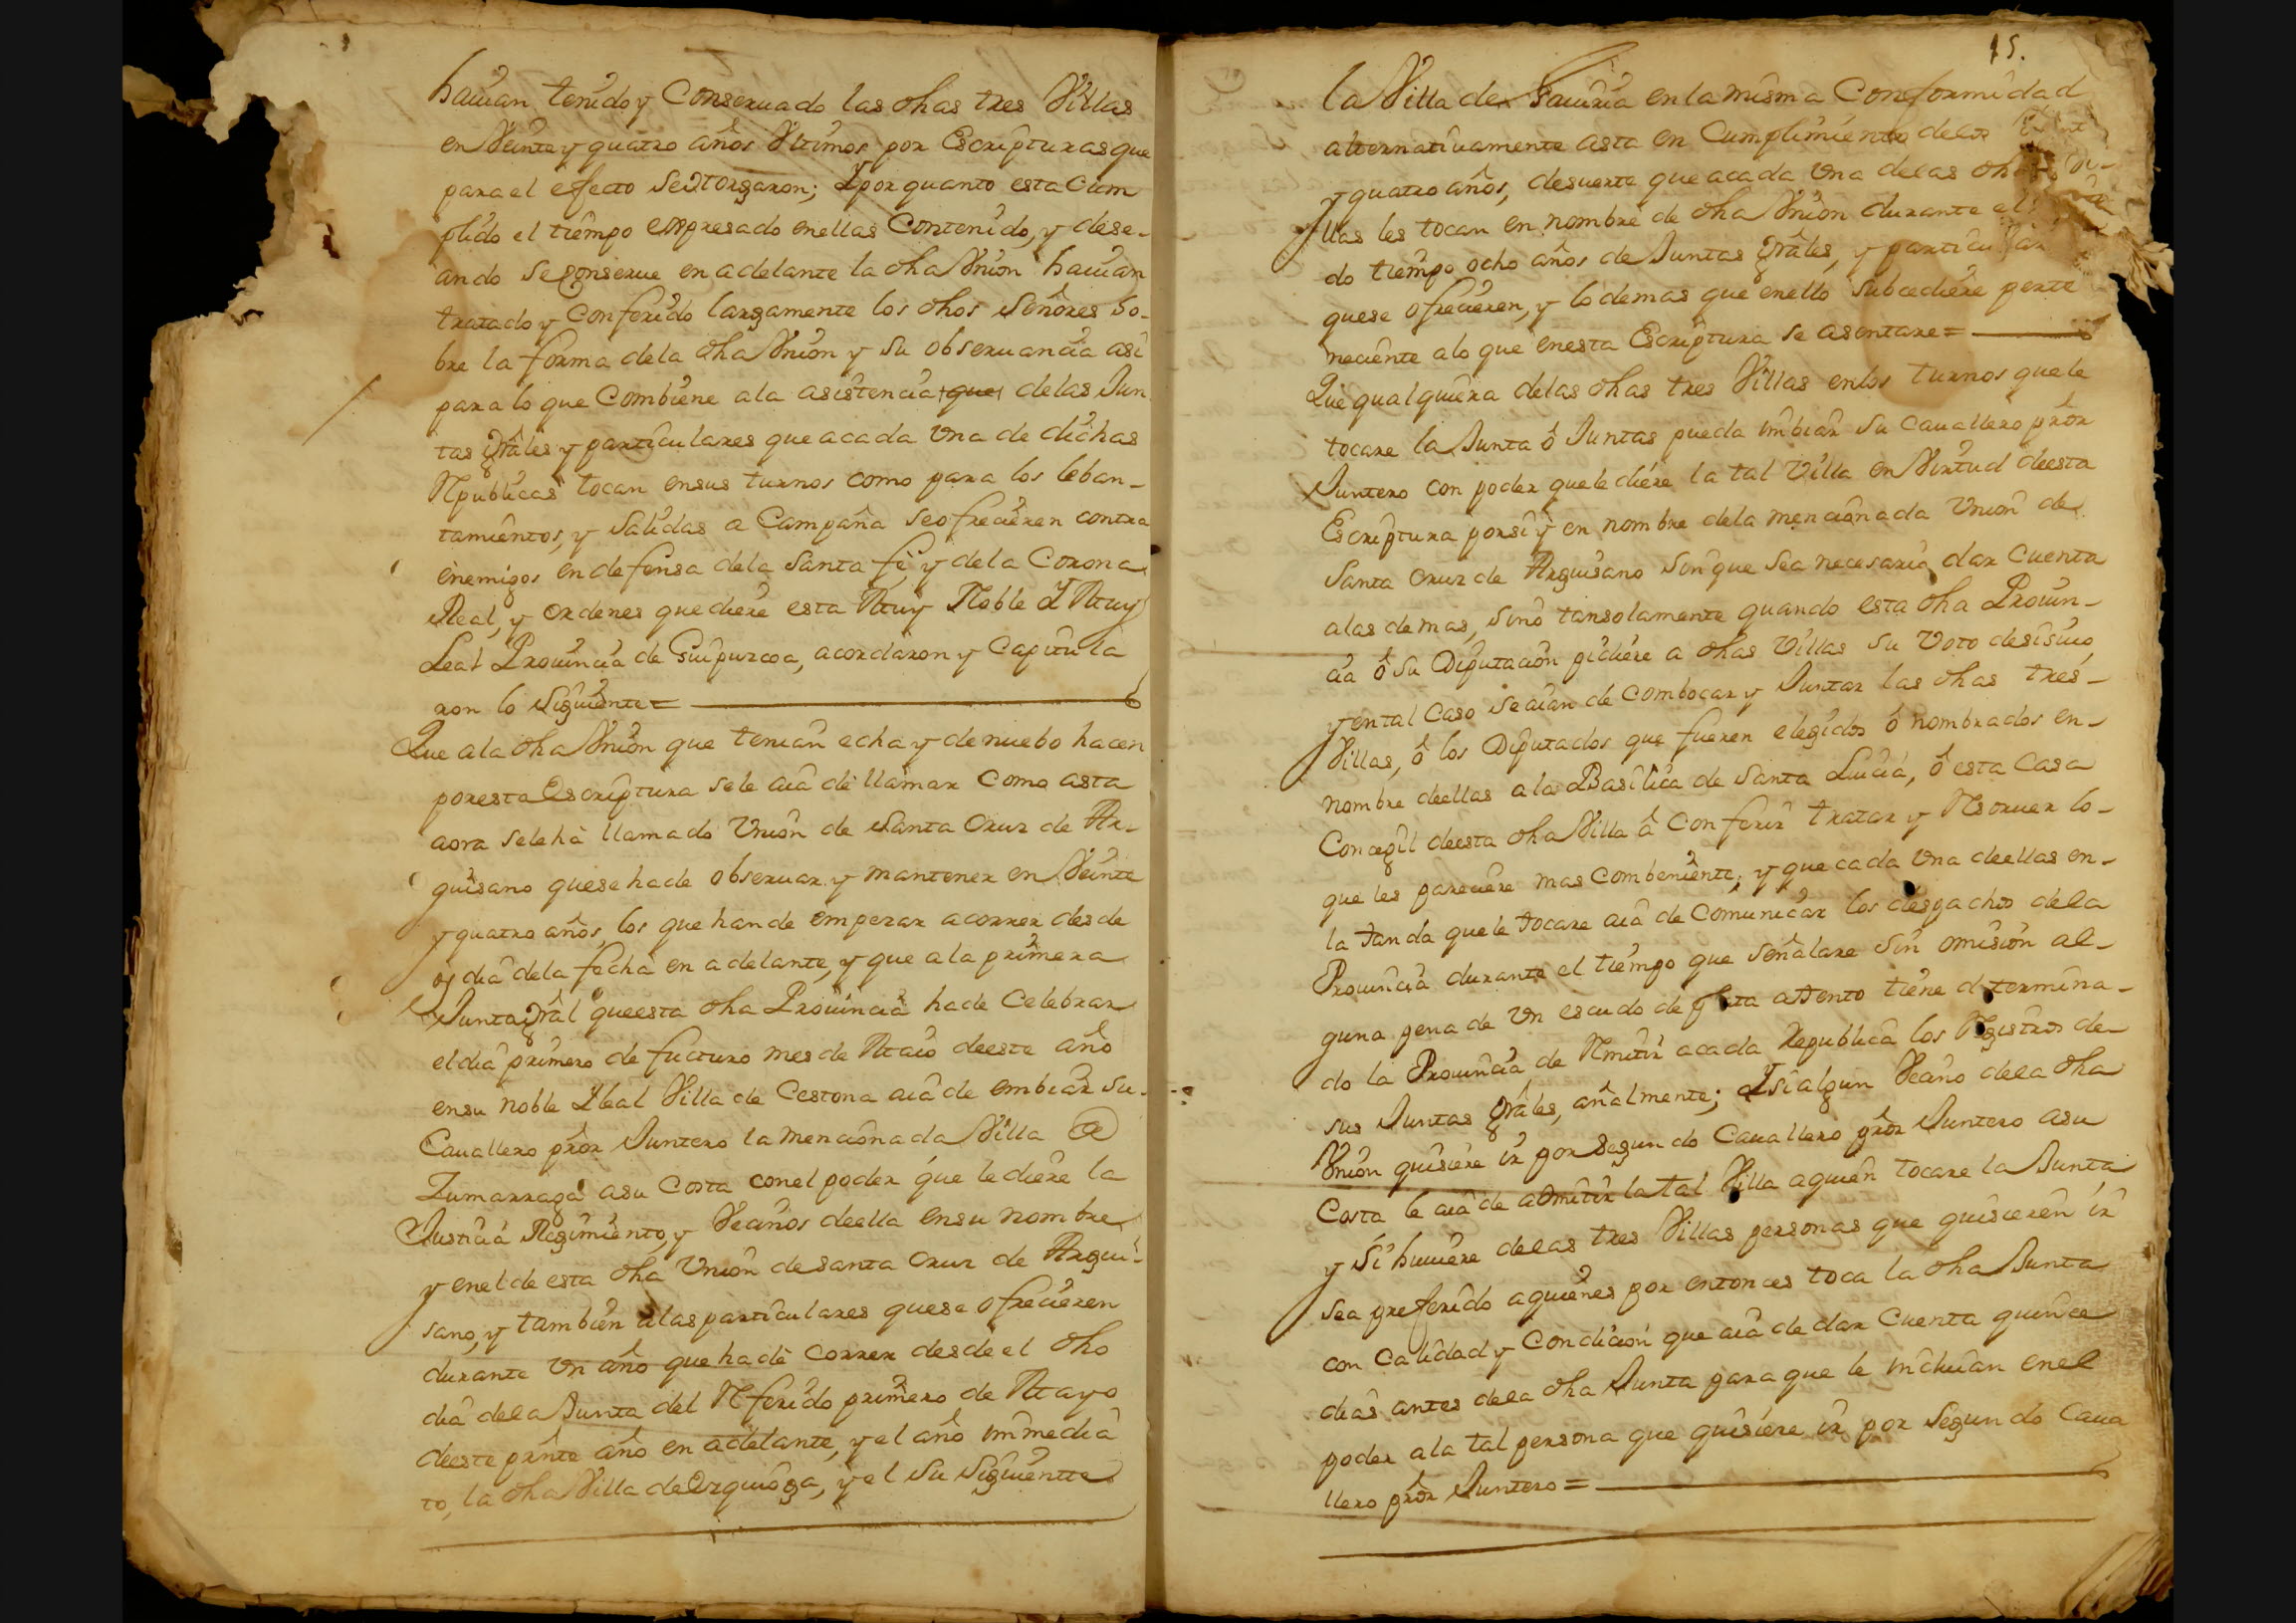 hauian tenido y Conseruado las dhas tres Villas
en Veinte y quatro años Vltimos por Escripturas que
para el efecto se otorgaron; Y por quanto esta Cum
plido el tiempo expresado en ellas Contenido, y dese-
ando se Conserue en adelante la dha Vnion hauian
tratado y Conferido largamente los dhos Señores so-
bre la forma de la dha Vnion y su obseruancia asi
para lo que Combiene a la asistencia que de las Jun
tas Grâles y particulares que a cada Vna de dichas
Republicas tocan en sus turnos como para los leban-
tamientos, y salidas a Campaña se ofrecieren contra
enemigos en defensa de la Santa fe y de la Corona
Real, y ordenes que diere esta Muy Noble Y Muy
Leal Prouincia de Guipuzcoa, acordaron y Capitula
ron lo Siguiente =
Que a la dha Vnion que tenian echa y de nuebo hacen
por esta Escriptura se le aia de llamar Como asta
aora se le ha llamado Vnion de Santa Cruz de Ar-
guisano que se ha de obseruar y mantener en Veinte
y quatro años, los que han de empezar a correr desde
oy dia de la fecha en adelante, y que a la primera
Junta Grâl que esta dha Prouincia ha de Celebrar
el dia primero de fucturo mes de Maio de este año
en su noble Y leal Villa de Cestona aia de embiar su
Cauallero prôr Juntero la mencionada Villa de
Zumarraga a su Costa con el poder que le diere la
Justicia Regimiento, y Vecinos de ella en su nombre
y en el de esta dha Vnion de Santa Cruz de Argui-
sano, y tambien a las particulares que se ofrecieren
durante Vn año que ha de correr desde el dho
dia de la Junta del Referido primero de Mayo
de este prînte año en adelante, y el año immedia
to, la dha Villa de Ezquioga, y el su siguiente
15.
la Villa de Gauiria en la misma Conformidad
alternatiuamente asta en Cumplimiento de los
y quatro años, desuerte que a cada Vna de las
llas les tocan en nombre de dha Vnion durante el
do tiempo ocho años de Juntas Grâles, y particular
que se ofrecieren, y lo demas que en ello subcediere perte
neciente a lo que en esta Escriptura se asentare =
Que qualquiera de las dhas tres Villas en los turnos que le
tocare la Junta ô Juntas pueda imbiar su Cauallero prôr
Juntero con poder que le diere la tal Villa en Virtud de esta
Escriptura por si y en nombre de la mencionada Vnion de
Santa Cruz de Arguisano sin que sea necesario dar Cuenta
a las demas, sino tan solamente quando esta dha Prouin-
cia ô su Diputacion pidiere a dhas Villas su Voto desisiuo,
y en tal Caso se aian de Combocar y Juntar las dhas tres
Villas, ô los Diputados que fueren elegidos ô nombrados en
nombre de ellas a la Basilica de Santa Lucia, ô esta Casa
Concegil de esta dha Villa â Conferir tratar y Resoruer lo
que les pareciere mas Combeniente; y que cada Vna de ellas en
la tanda que le tocare aia de Comunicar los despachos de la
Prouincia durante el tiempo que señalare sin omision al-
guna pena de Vn escudo de plata attento tiene determina-
do la Prouincia de Remitir a cada Republica los Registros de
sus Juntas Grâles, añalmente; Y si algun Vecino de la dha
Vnion quisiere ir por Segundo Cauallero prôr Juntero a su
Costa le aia de admitir la tal Villa a quien tocare la Junta
y si huuiere de las tres Villas personas que quisieren ir
sea preferido a quienes por entonces toca la dha Junta
con Calidad y Condicion que aia de dar Cuenta quince
dias antes de la dha Junta para que le incluian en el
poder a la tal persona que quisiere ir por Segundo Caua
llero prôr Juntero =